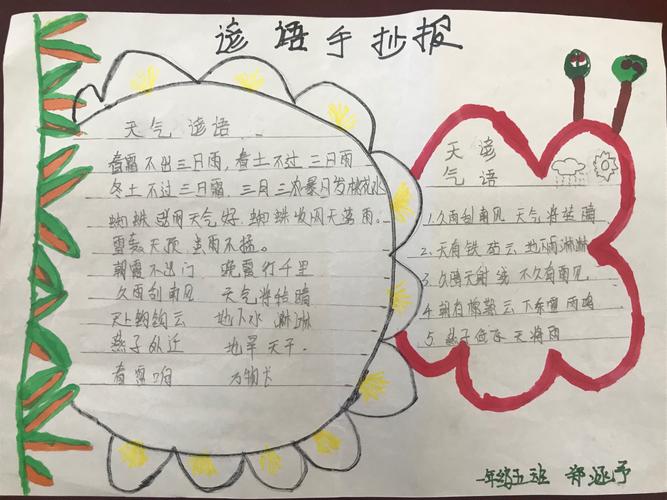 谚语手抄报
天气 谚语
春霜不出三日雨，春土不过三日雨
冬土不过三日霜，三月三 暴日发桃花水
蜘蛛 网天气好 蜘蛛收网天落雨。
雷轰天顶，雨不猛。
朝霞不出门 晚霞行千里
久雨刮南风 天气将转晴
天上钩钩云 地下水 淋淋
燕子外近 地旱天干.
春雷响 万物长
天谚
气语
1.久雨刮南风 天气将转晴
2.天有铁砧云 地下雨淋淋
3.久晴天射线 不久有雨见
4.朝有棉絮云 下午雷雨鸣
5.燕子低飞 天将雨
一年级五班 郑涵予